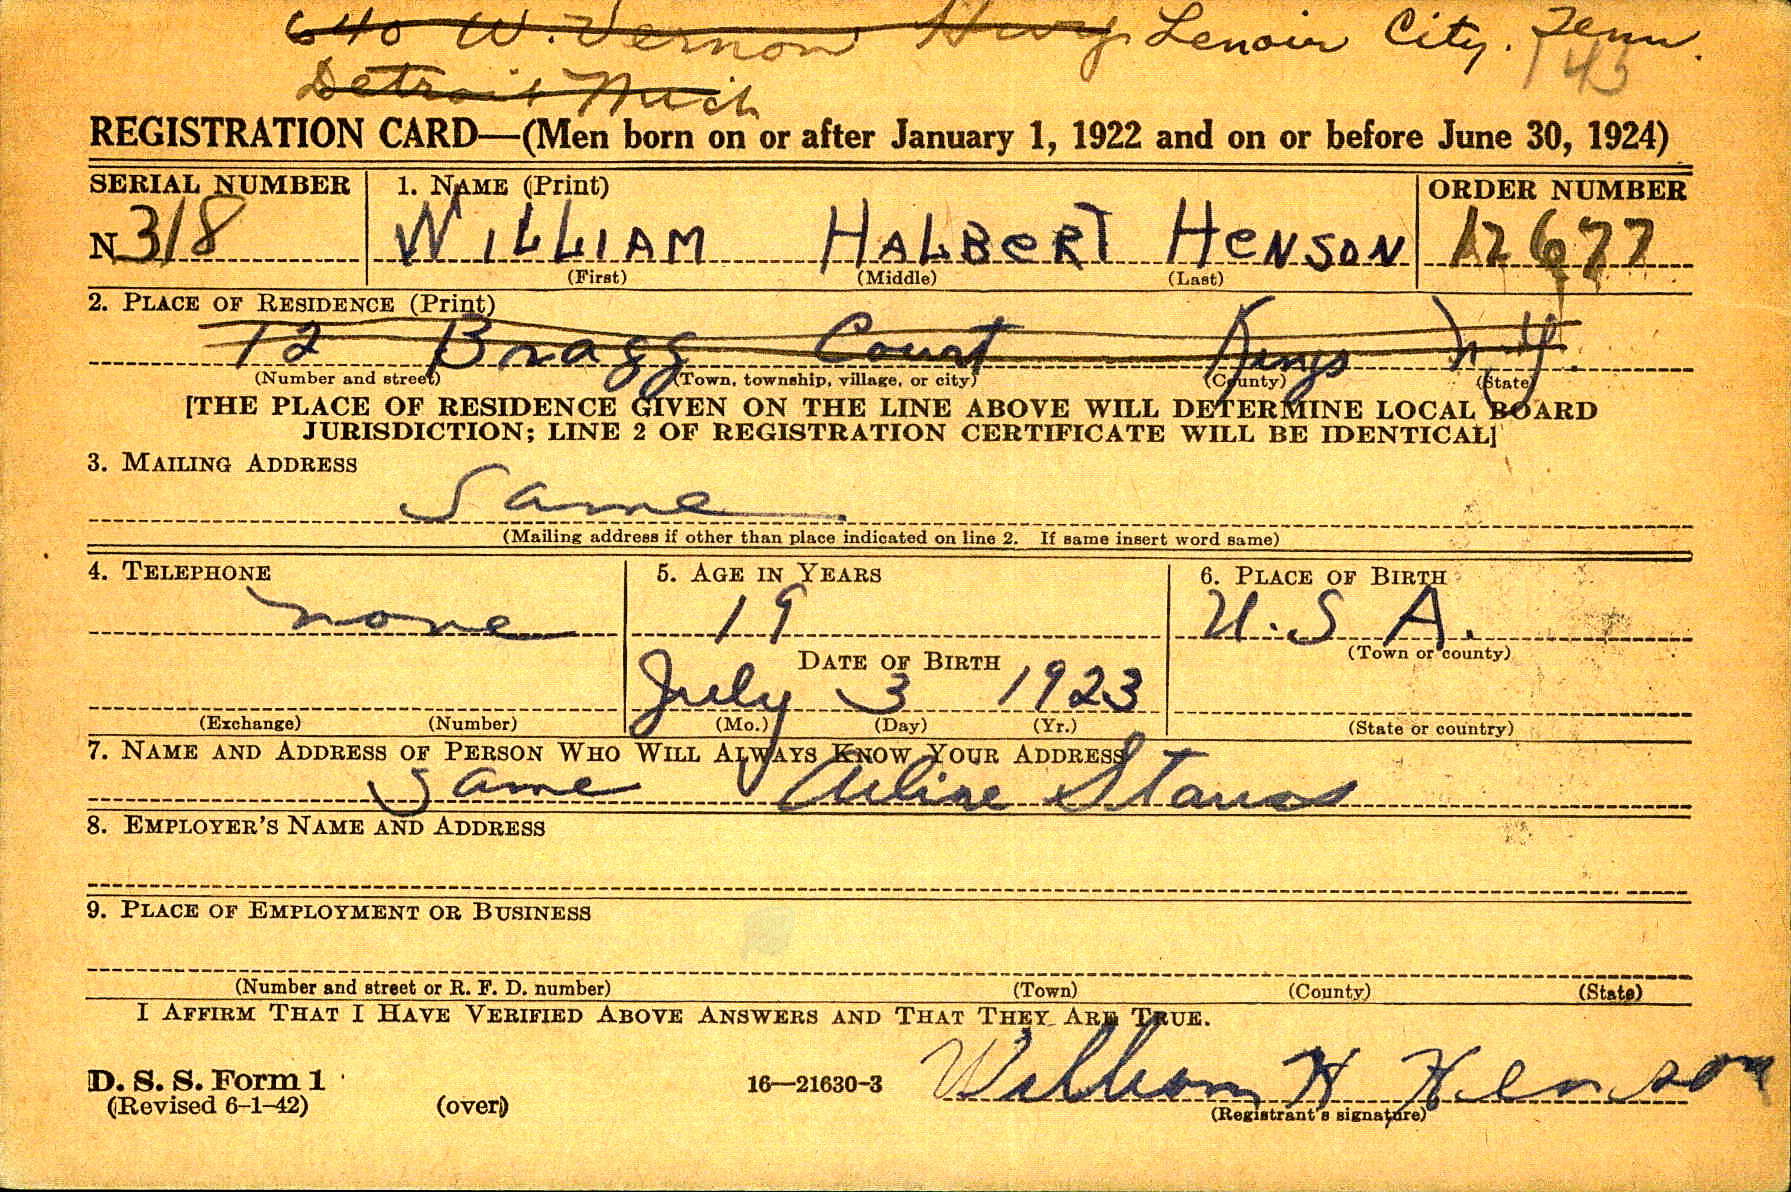 640 W. Vernon Hwy. Lenoir City. Tenn.
Detroit Mich 145
REGISTRATION CARD—(Men born on or after January 1, 1922 and on or before June 30, 1924)
SERIAL NUMBER 1. NAME (Print) ORDER NUMBER
N 318 WILLIAM HALBERT HENSON 12677
(First) (Middle) (Last)
2. PLACE OF RESIDENCE (Print)
12 Bragg Court Kings N.Y.
(Number and street) (Town, township, village, or city) (County) (State)
[THE PLACE OF RESIDENCE GIVEN ON THE LINE ABOVE WILL DETERMINE LOCAL BOARD
JURISDICTION; LINE 2 OF REGISTRATION CERTIFICATE WILL BE IDENTICAL]
3. MAILING ADDRESS
Same
(Mailing address if other than place indicated on line 2. If same insert word same)
4. TELEPHONE 5. AGE IN YEARS 6. PLACE OF BIRTH
none 19 U.S.A.
DATE OF BIRTH (Town or county)
July 3 1923
(Exchange) (Number) (Mo.) (Day) (Yr.) (State or country)
7. NAME AND ADDRESS OF PERSON WHO WILL ALWAYS KNOW YOUR ADDRESS
Same Arline
8. EMPLOYER'S NAME AND ADDRESS
9. PLACE OF EMPLOYMENT OR BUSINESS
(Number and street or R. F. D. number) (Town) (County) (State)
I AFFIRM THAT I HAVE VERIFIED ABOVE ANSWERS AND THAT THEY ARE TRUE.
D. S. S. Form 1 16—21630-3 William H Henson
(Revised 6-1-42) (over) (Registrant's signature)